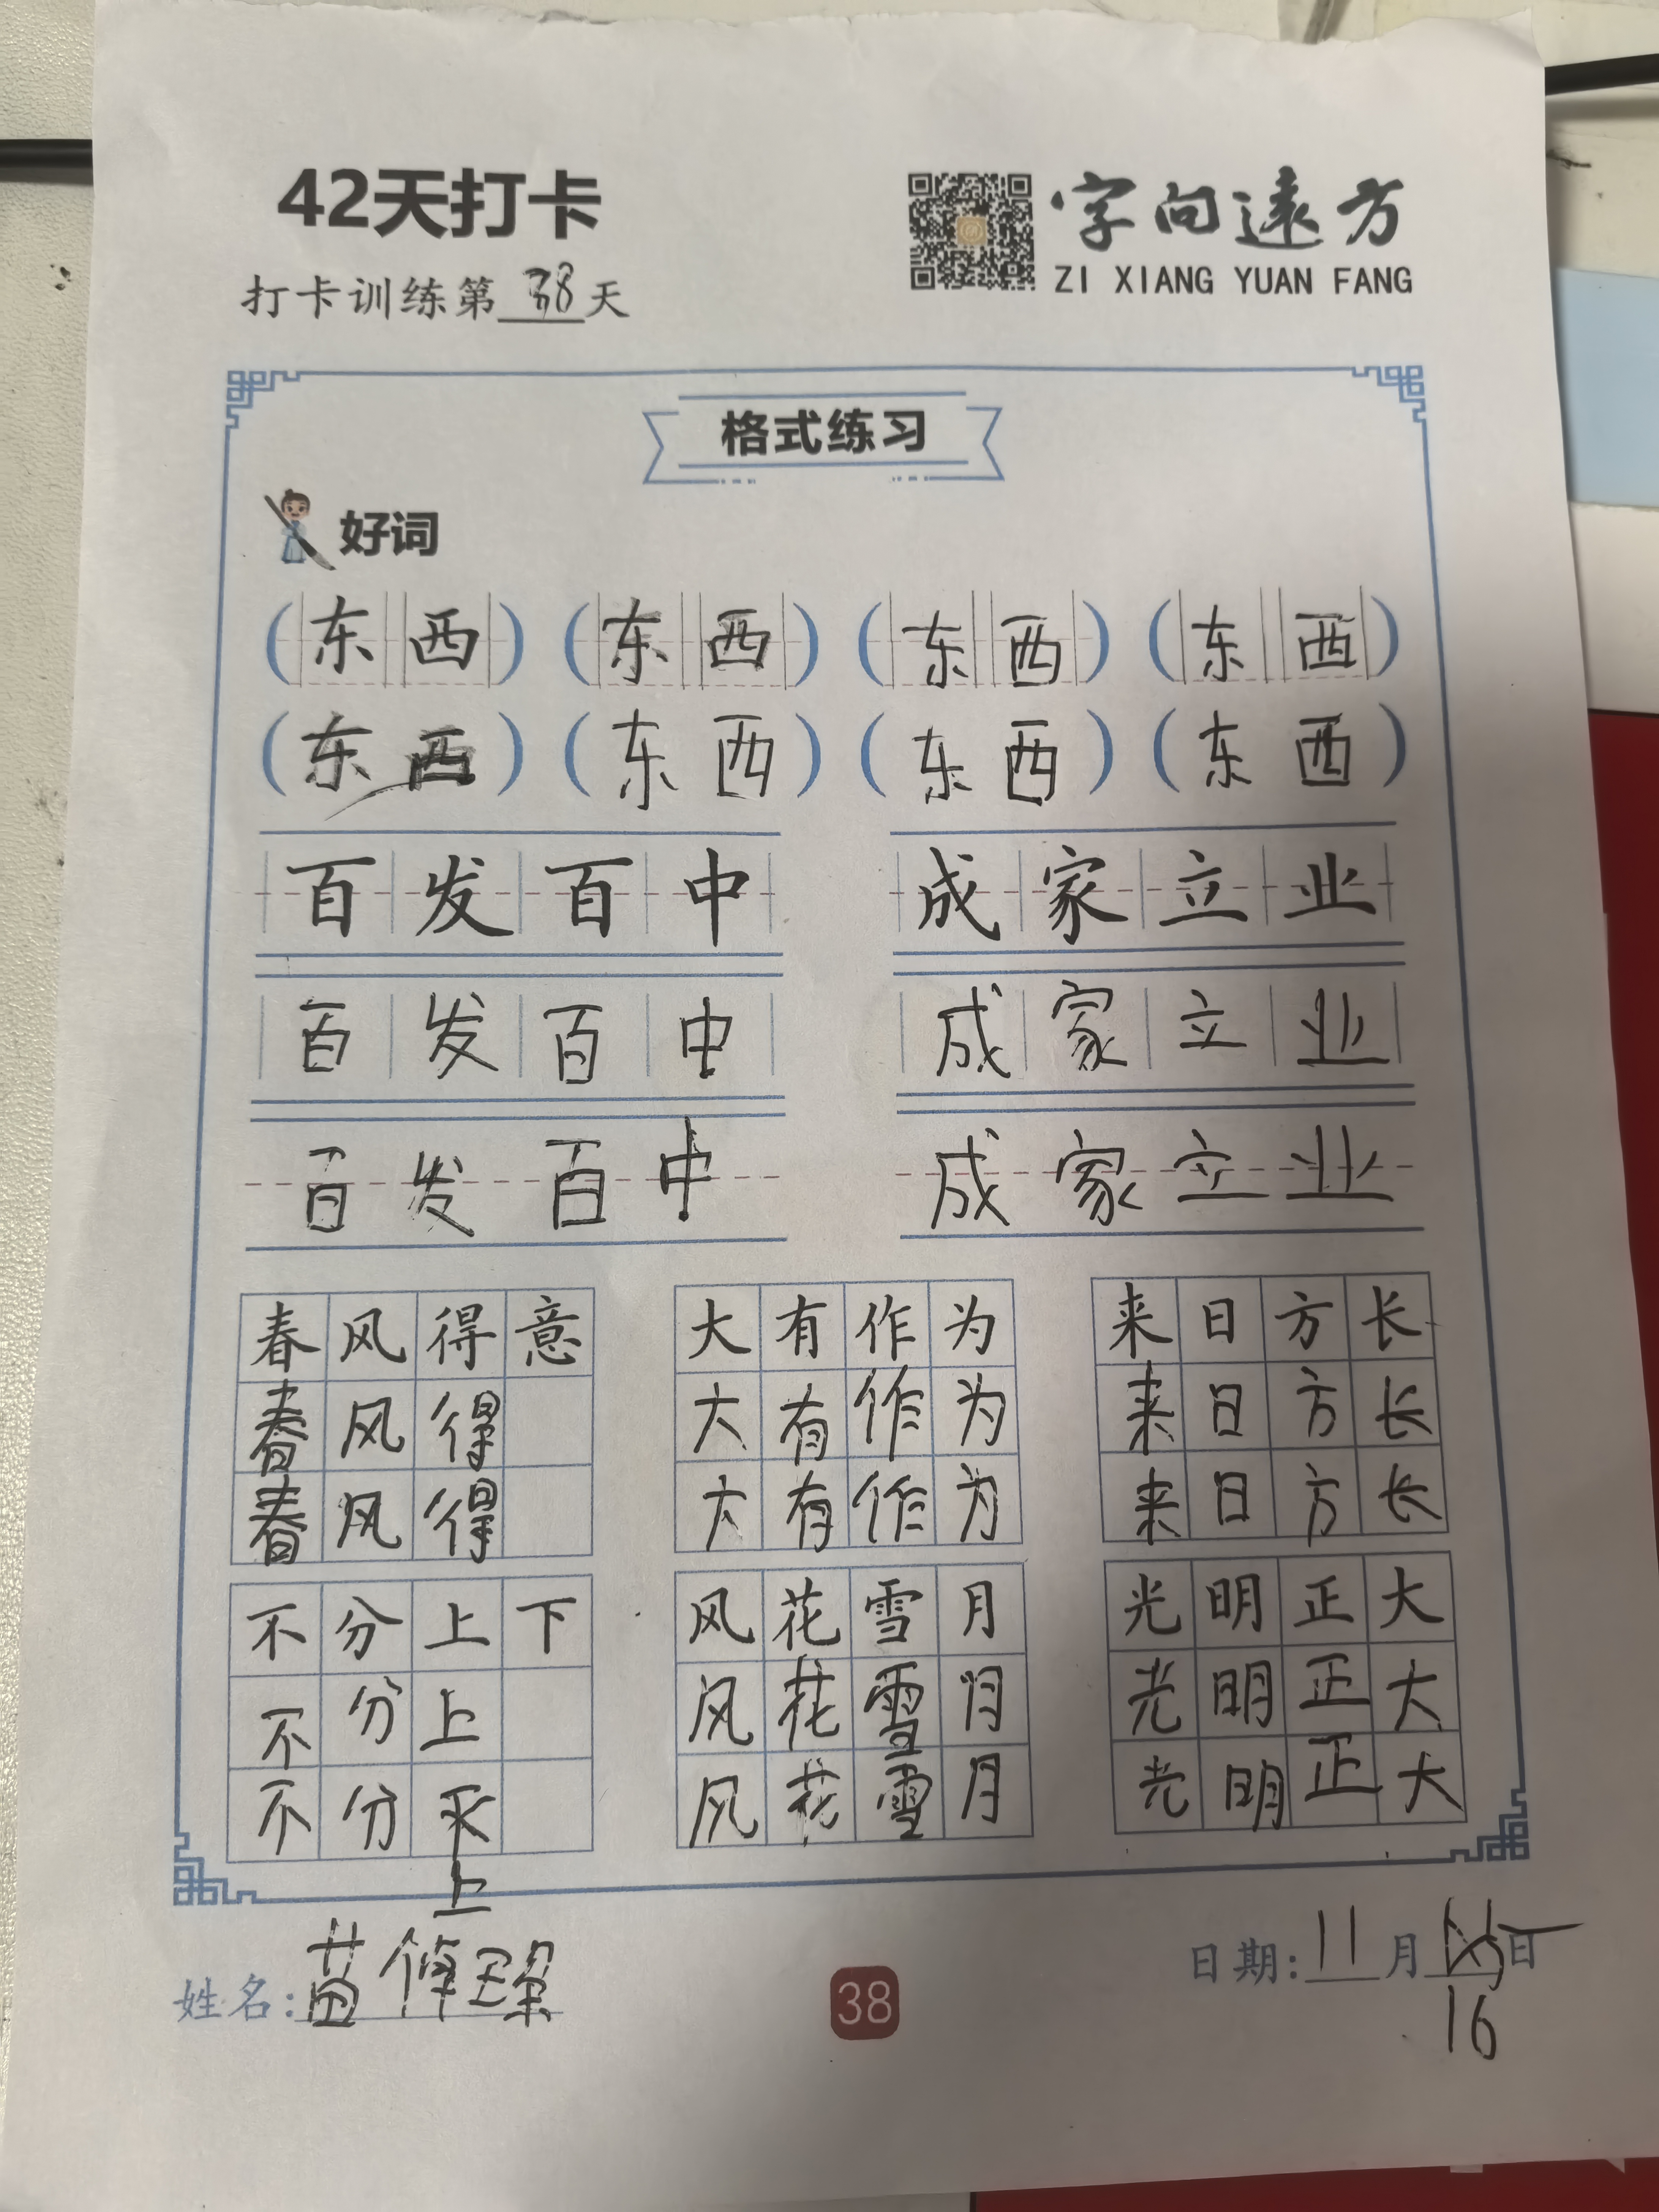 42天打卡
字向遠方
ZI XIANG YUAN FANG
打卡训练第38天
格式练习
好词
(东西) (东西) (东西) (东西)
(东西) (东西) (东西) (东西)
百发百中 成家立业
百发百中 成家立业
百发百中 成家立业
春风得意 大有作为 来日方长
春风得 大有作为 来日方长
春风得 大有作为 来日方长
不分上下 风花雪月 光明正大
不分上 风花雪月 光明正大
不分 风花雪月 光明正大
上
姓名:
38
日期:11月日
16